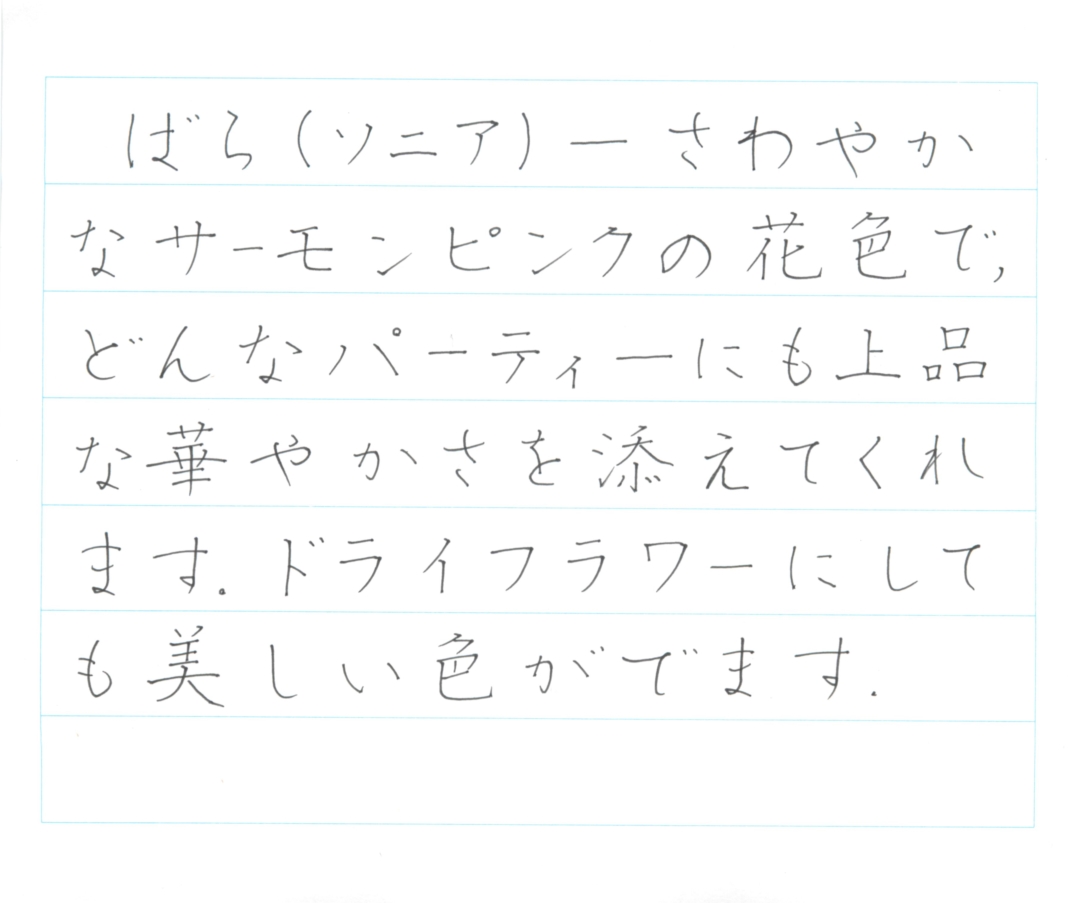 ばら(ソニア)―さわやか
なサーモンピンクの花色で,
どんなパーティーにも上品
な華やかさを添えてくれ
ます.ドライフラワーにして
も美しい色がでます.